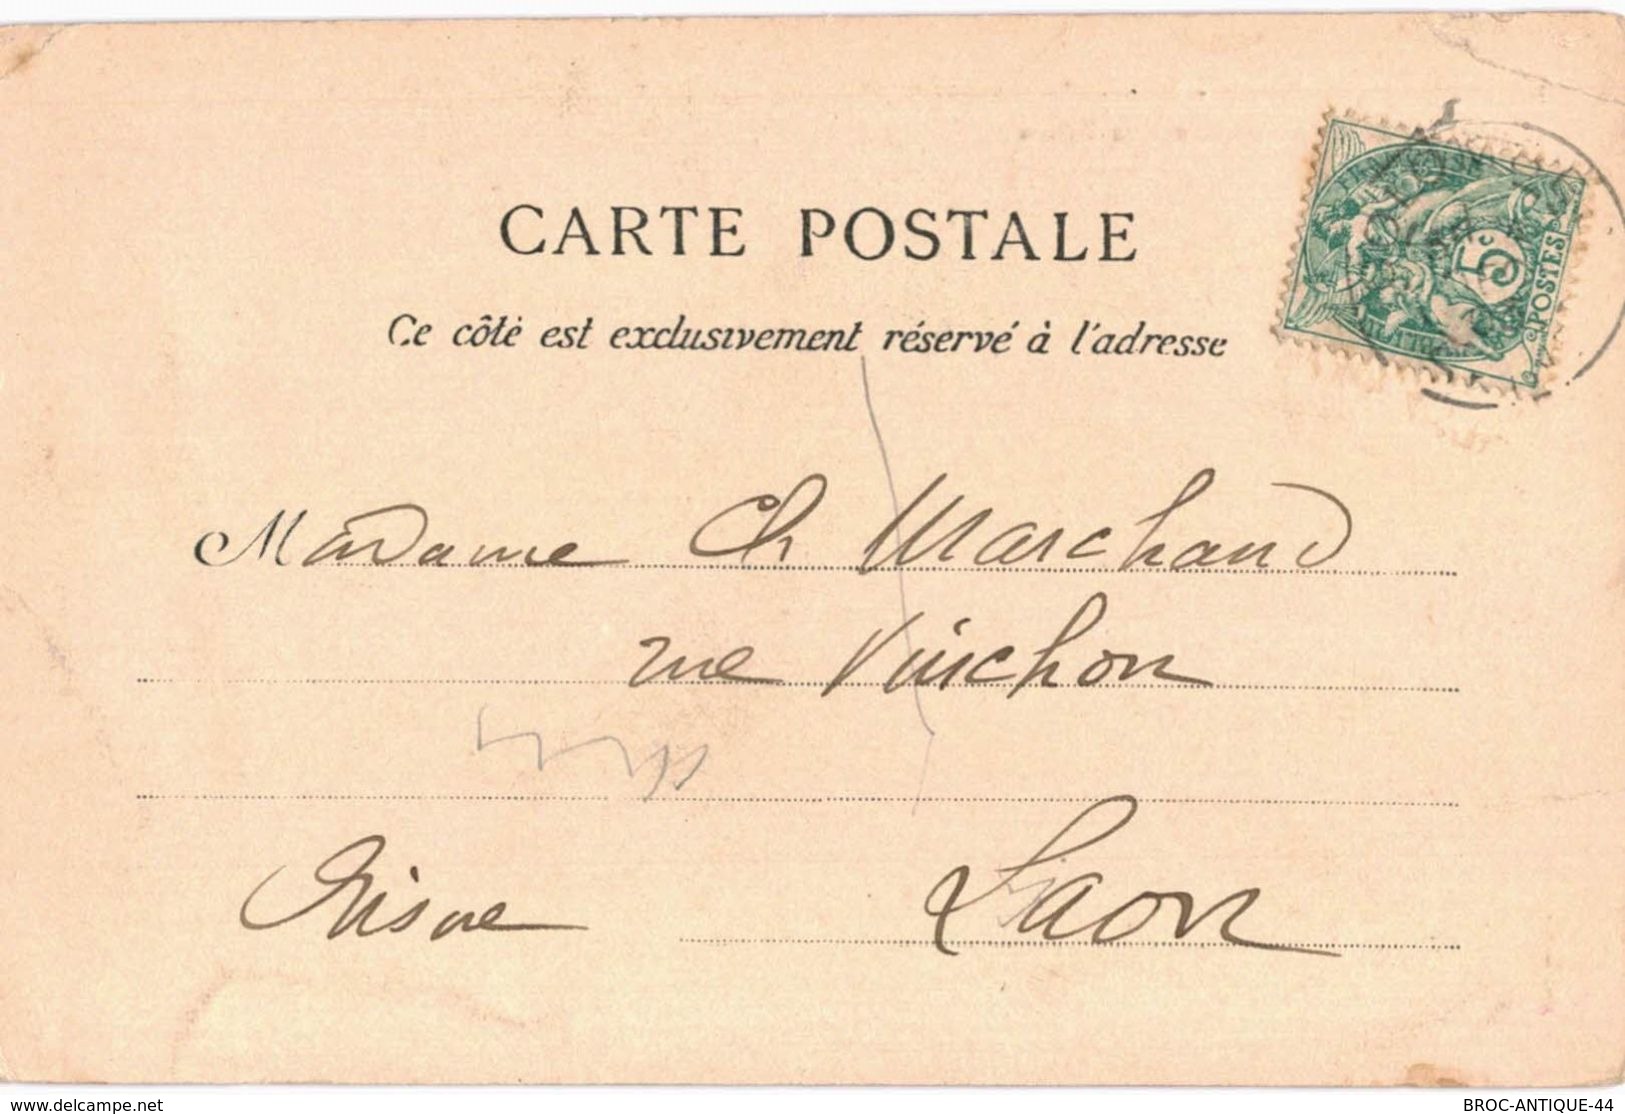 CARTE POSTALE
Ce côté est exclusivement réservé à l'adresse
5c
POSTES
Madame Ch Marchand
rue Vinchon
Laon
Aisne
www.delcampe.net
BROC-ANTIQUE-44